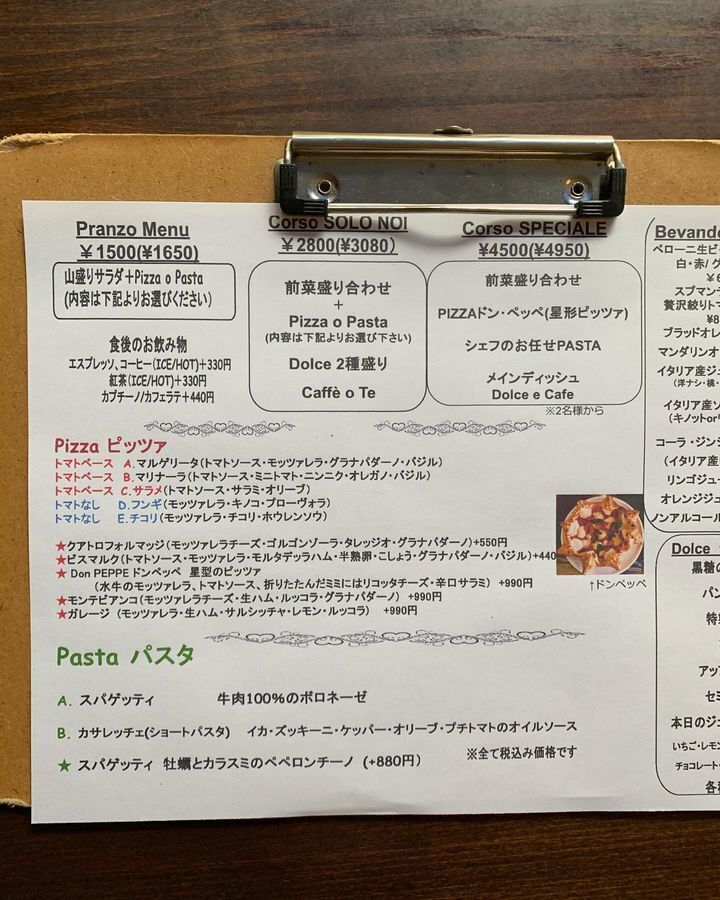 Pranzo Menu
￥1500(¥1650)
山盛りサラダ＋Pizza o Pasta
(内容は下記よりお選びください)
食後のお飲み物
エスプレッソ、コーヒー(ICE/HOT)＋330円
紅茶(ICE/HOT)＋330円
カプチーノ/カフェラテ＋440円
Corso SOLO NOI
￥2800(¥3080)
前菜盛り合わせ
＋
Pizza o Pasta
(内容は下記よりお選び下さい)
Dolce 2種盛り
Caffè o Te
Corso SPECIALE
¥4500(¥4950)
前菜盛り合わせ
PIZZAドン・ペッペ(星形ピッツァ)
シェフのお任せPASTA
メインディッシュ
Dolce e Cafe
※2名様から
Pizza ピッツァ
トマトベース A.マルゲリータ(トマトソース・モッツァレラ・グラナパダーノ・バジル)
トマトベース B.マリナーラ(トマトソース・ミニトマト・ニンニク・オレガノ・バジル)
トマトベース C.サラメ(トマトソース・サラミ・オリーブ)
トマトなし D.フンギ(モッツァレラ・キノコ・プローヴォラ)
トマトなし E.チコリ(モッツァレラ・チコリ・ホウレンソウ)
★クアトロフォルマッジ(モッツァレラチーズ・ゴルゴンゾーラ・タレッジオ・グラナパダーノ)+550円
★ビスマルク(トマトソース・モッツァレラ・モルタデッラハム・半熟卵・こしょう・グラナパダーノ・バジル)+440
★ Don PEPPE ドンペッペ 星型のピッツァ
(水牛のモッツァレラ、トマトソース、折りたたんだミミにはリコッタチーズ・辛口サラミ) +990円
★モンテビアンコ(モッツァレラチーズ・生ハム・ルッコラ・グラナパダーノ) +990円
★ガレージ (モッツァレラ・生ハム・サルシッチャ・レモン・ルッコラ) +990円
↑ドンペッペ
Pasta パスタ
A. スパゲッティ 牛肉100%のボロネーゼ
B. カサレッチェ(ショートパスタ) イカ・ズッキーニ・ケッパー・オリーブ・プチトマトのオイルソース
★ スパゲッティ 牡蠣とカラスミのペペロンチーノ (+880円)
※全て税込み価格です
Bevande
ペローニ生ビ
白・赤/グ
スプマン
贅沢絞りト
¥8
ブラッドオレ
マンダリンオ
イタリア産ジュ
(洋ナシ・桃・
イタリア産ソ
(キノットor
コーラ・ジンジ
(イタリア産
リンゴジュー
オレンジジュ
ノンアルコール
Dolce
黒糖の
パン
特
アッ
セミ
本日のジェ
いちご・レモン
チョコレート・
各種